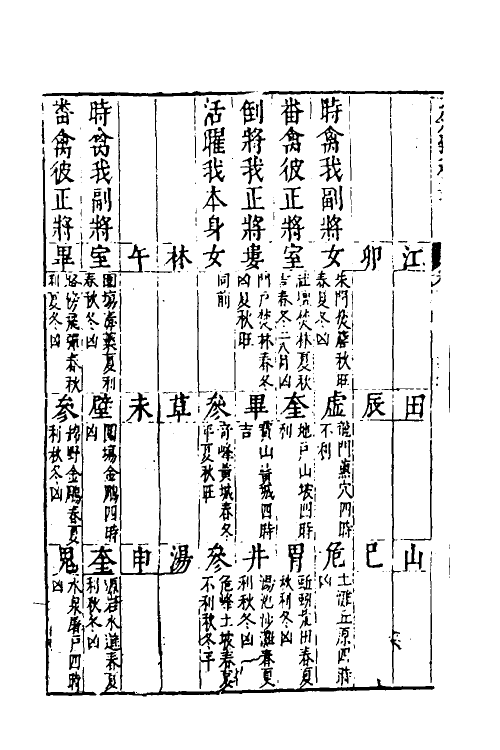 江　田　山
卯　辰　巳
時禽我副將　女朱門焚薜秋旺春夏冬凶　虛龍門熏穴四時不利　危土灘丘原四時凶
畨禽彼正將　室　焚林夏秋吉春冬二八月凶　奎地戶山坡四時利　胃　田春夏秋利冬凶
倒將我正將　婁門戶焚林春冬凶夏秋旺　畢寶山黃城四時吉　井湯池沙灘春夏利秋冬凶
活曜我本身　女同前　參奇峰黃城春冬平夏秋旺　參危峰土坡春夏不利秋冬平
林　草　湯
午　未　申
時禽我副將　室園場　葉夏利春秋冬凶　壁園場金鵰四時凶　奎源岩水邊春夏利秋冬凶
畨禽彼正將　畢路傍展翼春秋利夏冬凶　參錦野金鵰春夏利秋冬凶　鬼水泉屏戶四時凶